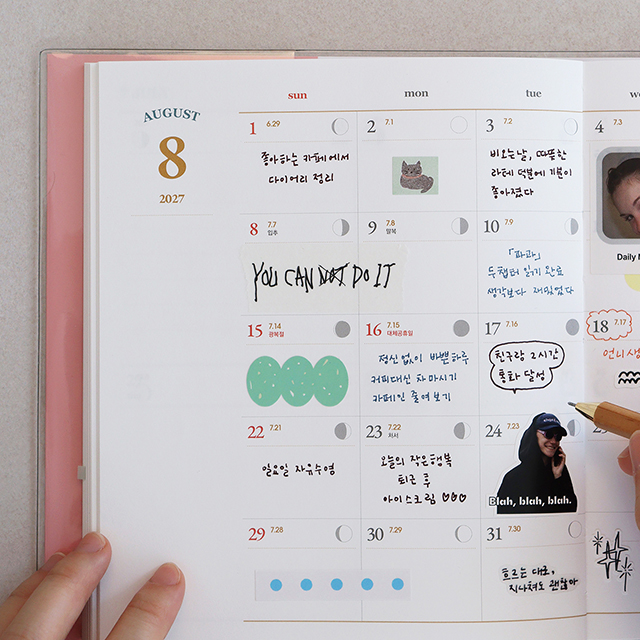 AUGUST
8
2027
sun
mon
tue
1 6.29
2 7.1
3 7.2
4 7.3
좋아하는 카페에서
다이어리 정리
비오는날, 따뜻한
라떼 덕분에 기분이
좋아졌다
Daily
8 7.7
입추
9 7.8
말복
10 7.9
YOU CAN NOT DO IT
「파과」
두챕터 읽기 완료
생각보다 재밌었다
15 7.14
광복절
16 7.15
대체공휴일
17 7.16
18 7.17
정신없이 바쁜하루
커피대신 차마시기
카페인 줄여보기
친구랑 2시간
통화 달성
언니생
22 7.21
23 7.22
처서
24 7.23
일요일 자유수영
오늘의 작은행복
퇴근 후
아이스크림 ♡♡♡
Blah, blah, blah.
29 7.28
30 7.29
31 7.30
흐르는 대로,
지나쳐도 괜찮아